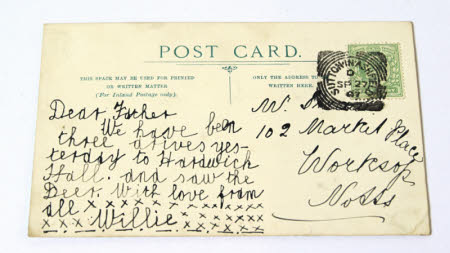 POST CARD.
THIS SPACE MAY BE USED FOR PRINTED
OR WRITTEN MATTER
(For Inland Postage only).
ONLY THE ADDRESS TO
WRITTEN HERE.
SUTTON-IN-ASHFIELD
SP 27
Dear Father
We have been
three drives yes-
terday to Hardwick
Hall. and saw the
Deer. With love from
all x x x x x x x x x
x x x x x x x x x x x
x x x Willie x x x x
Mr.
102 Market Place
Worksop
Notts